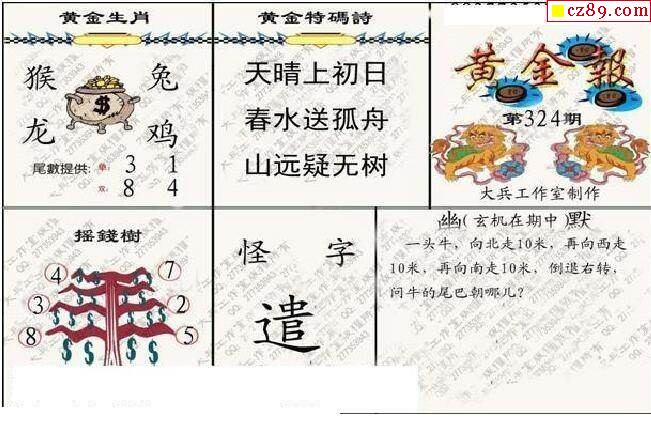 cz89.com
黄金生肖
猴 兔
$
龙 鸡
尾數提供: 单: 3 1
双: 8 4
黄金特碼詩
天晴上初日
春水送孤舟
山远疑无树
黄金報
第324期
大兵工作室制作
摇錢樹
4 7
3 2
8 5
怪 字
遣
幽(玄机在期中)默
一头牛，向北走10米，再向西走
10米，再向南走10米，倒退右转，
问牛的尾巴朝哪儿？